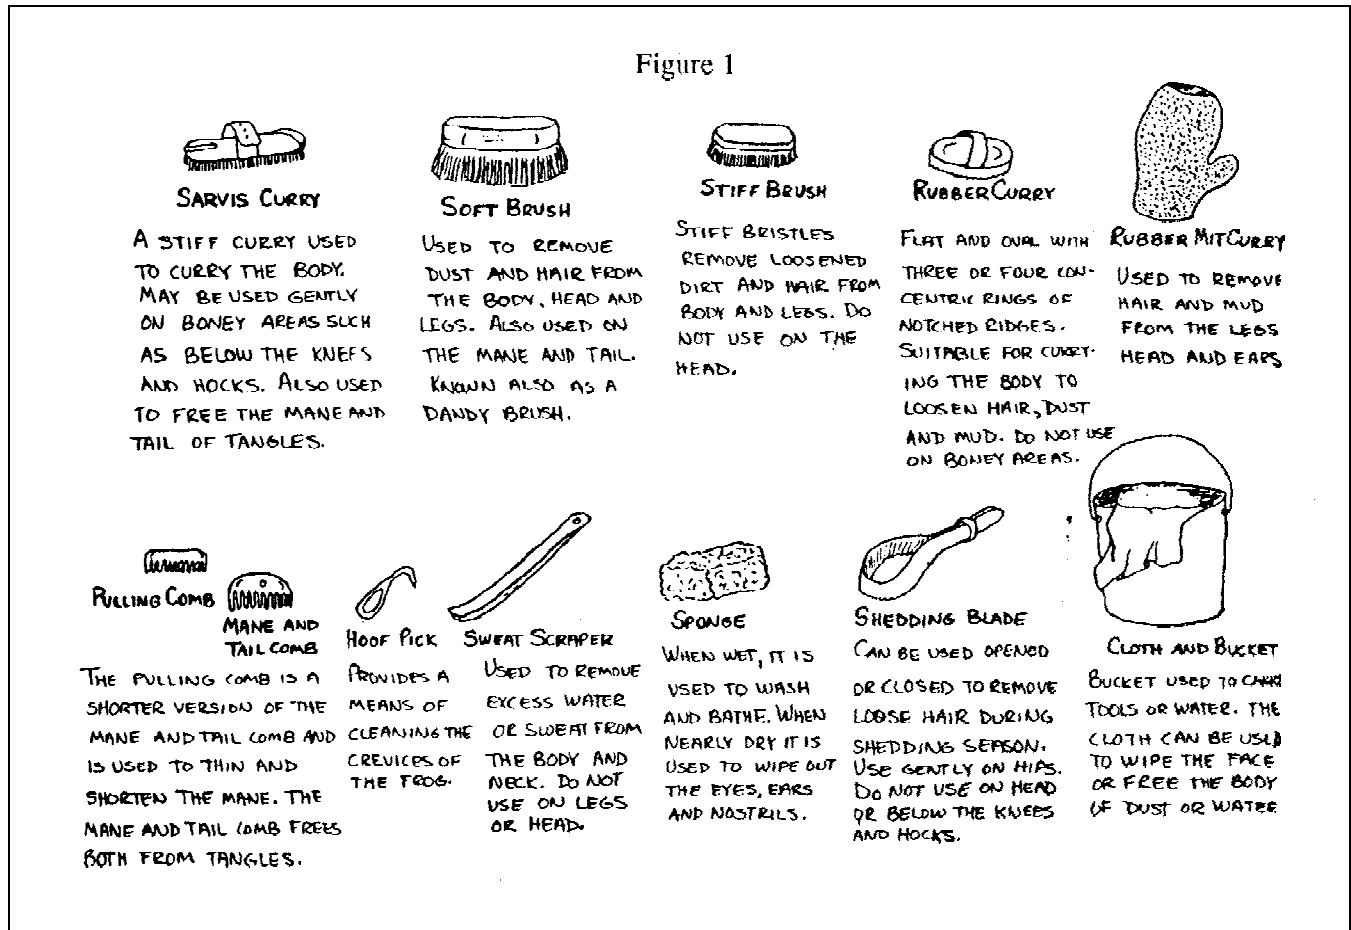 Figure 1
SARVIS CURRY
A STIFF CURRY USED
TO CURRY THE BODY.
MAY BE USED GENTLY
ON BONEY AREAS SUCH
AS BELOW THE KNEES
AND HOCKS. ALSO USED
TO FREE THE MANE AND
TAIL OF TANGLES.
SOFT BRUSH
USED TO REMOVE
DUST AND HAIR FROM
THE BODY, HEAD AND
LEGS. ALSO USED ON
THE MANE AND TAIL.
KNOWN ALSO AS A
DANDY BRUSH.
STIFF BRUSH
STIFF BRISTLES
REMOVE LOOSENED
DIRT AND HAIR FROM
BODY AND LEGS. DO
NOT USE ON THE
HEAD.
RUBBER CURRY
FLAT AND OVAL WITH
THREE OR FOUR CON-
CENTRIC RINGS OF
NOTCHED RIDGES.
SUITABLE FOR CURRY-
ING THE BODY TO
LOOSEN HAIR, DUST
AND MUD. DO NOT USE
ON BONEY AREAS.
RUBBER MIT CURRY
USED TO REMOVE
HAIR AND MUD
FROM THE LEGS
HEAD AND EARS
PULLING COMB
MANE AND
TAIL COMB
THE PULLING COMB IS A
SHORTER VERSION OF THE
MANE AND TAIL COMB AND
IS USED TO THIN AND
SHORTEN THE MANE. THE
MANE AND TAIL COMB FREES
BOTH FROM TANGLES.
HOOF PICK
PROVIDES A
MEANS OF
CLEANING THE
CREVICES OF
THE FROG.
SWEAT SCRAPER
USED TO REMOVE
EXCESS WATER
OR SWEAT FROM
THE BODY AND
NECK. DO NOT
USE ON LEGS
OR HEAD.
SPONGE
WHEN WET, IT IS
USED TO WASH
AND BATHE. WHEN
NEARLY DRY IT IS
USED TO WIPE OUT
THE EYES, EARS
AND NOSTRILS.
SHEDDING BLADE
CAN BE USED OPENED
OR CLOSED TO REMOVE
LOOSE HAIR DURING
SHEDDING SEASON.
USE GENTLY ON HIPS.
DO NOT USE ON HEAD
OR BELOW THE KNEES
AND HOCKS.
CLOTH AND BUCKET
BUCKET USED TO CARRY
TOOLS OR WATER. THE
CLOTH CAN BE USED
TO WIPE THE FACE
OR FREE THE BODY
OF DUST OR WATER